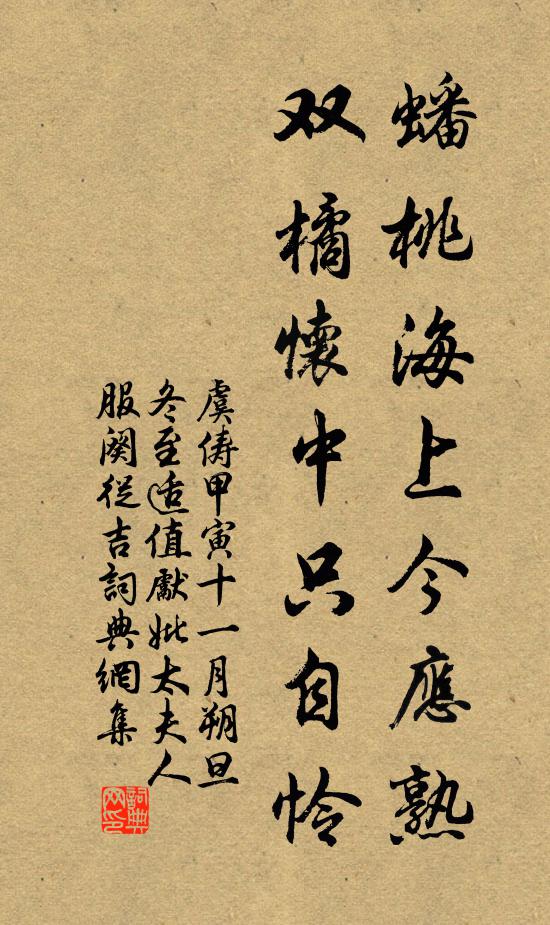 蟠桃海上今應熟
双橘懷中只自怜
虞俦甲寅十一月朔旦
冬至适值獻妣太夫人
服闋從吉詞典網集
詞典网印